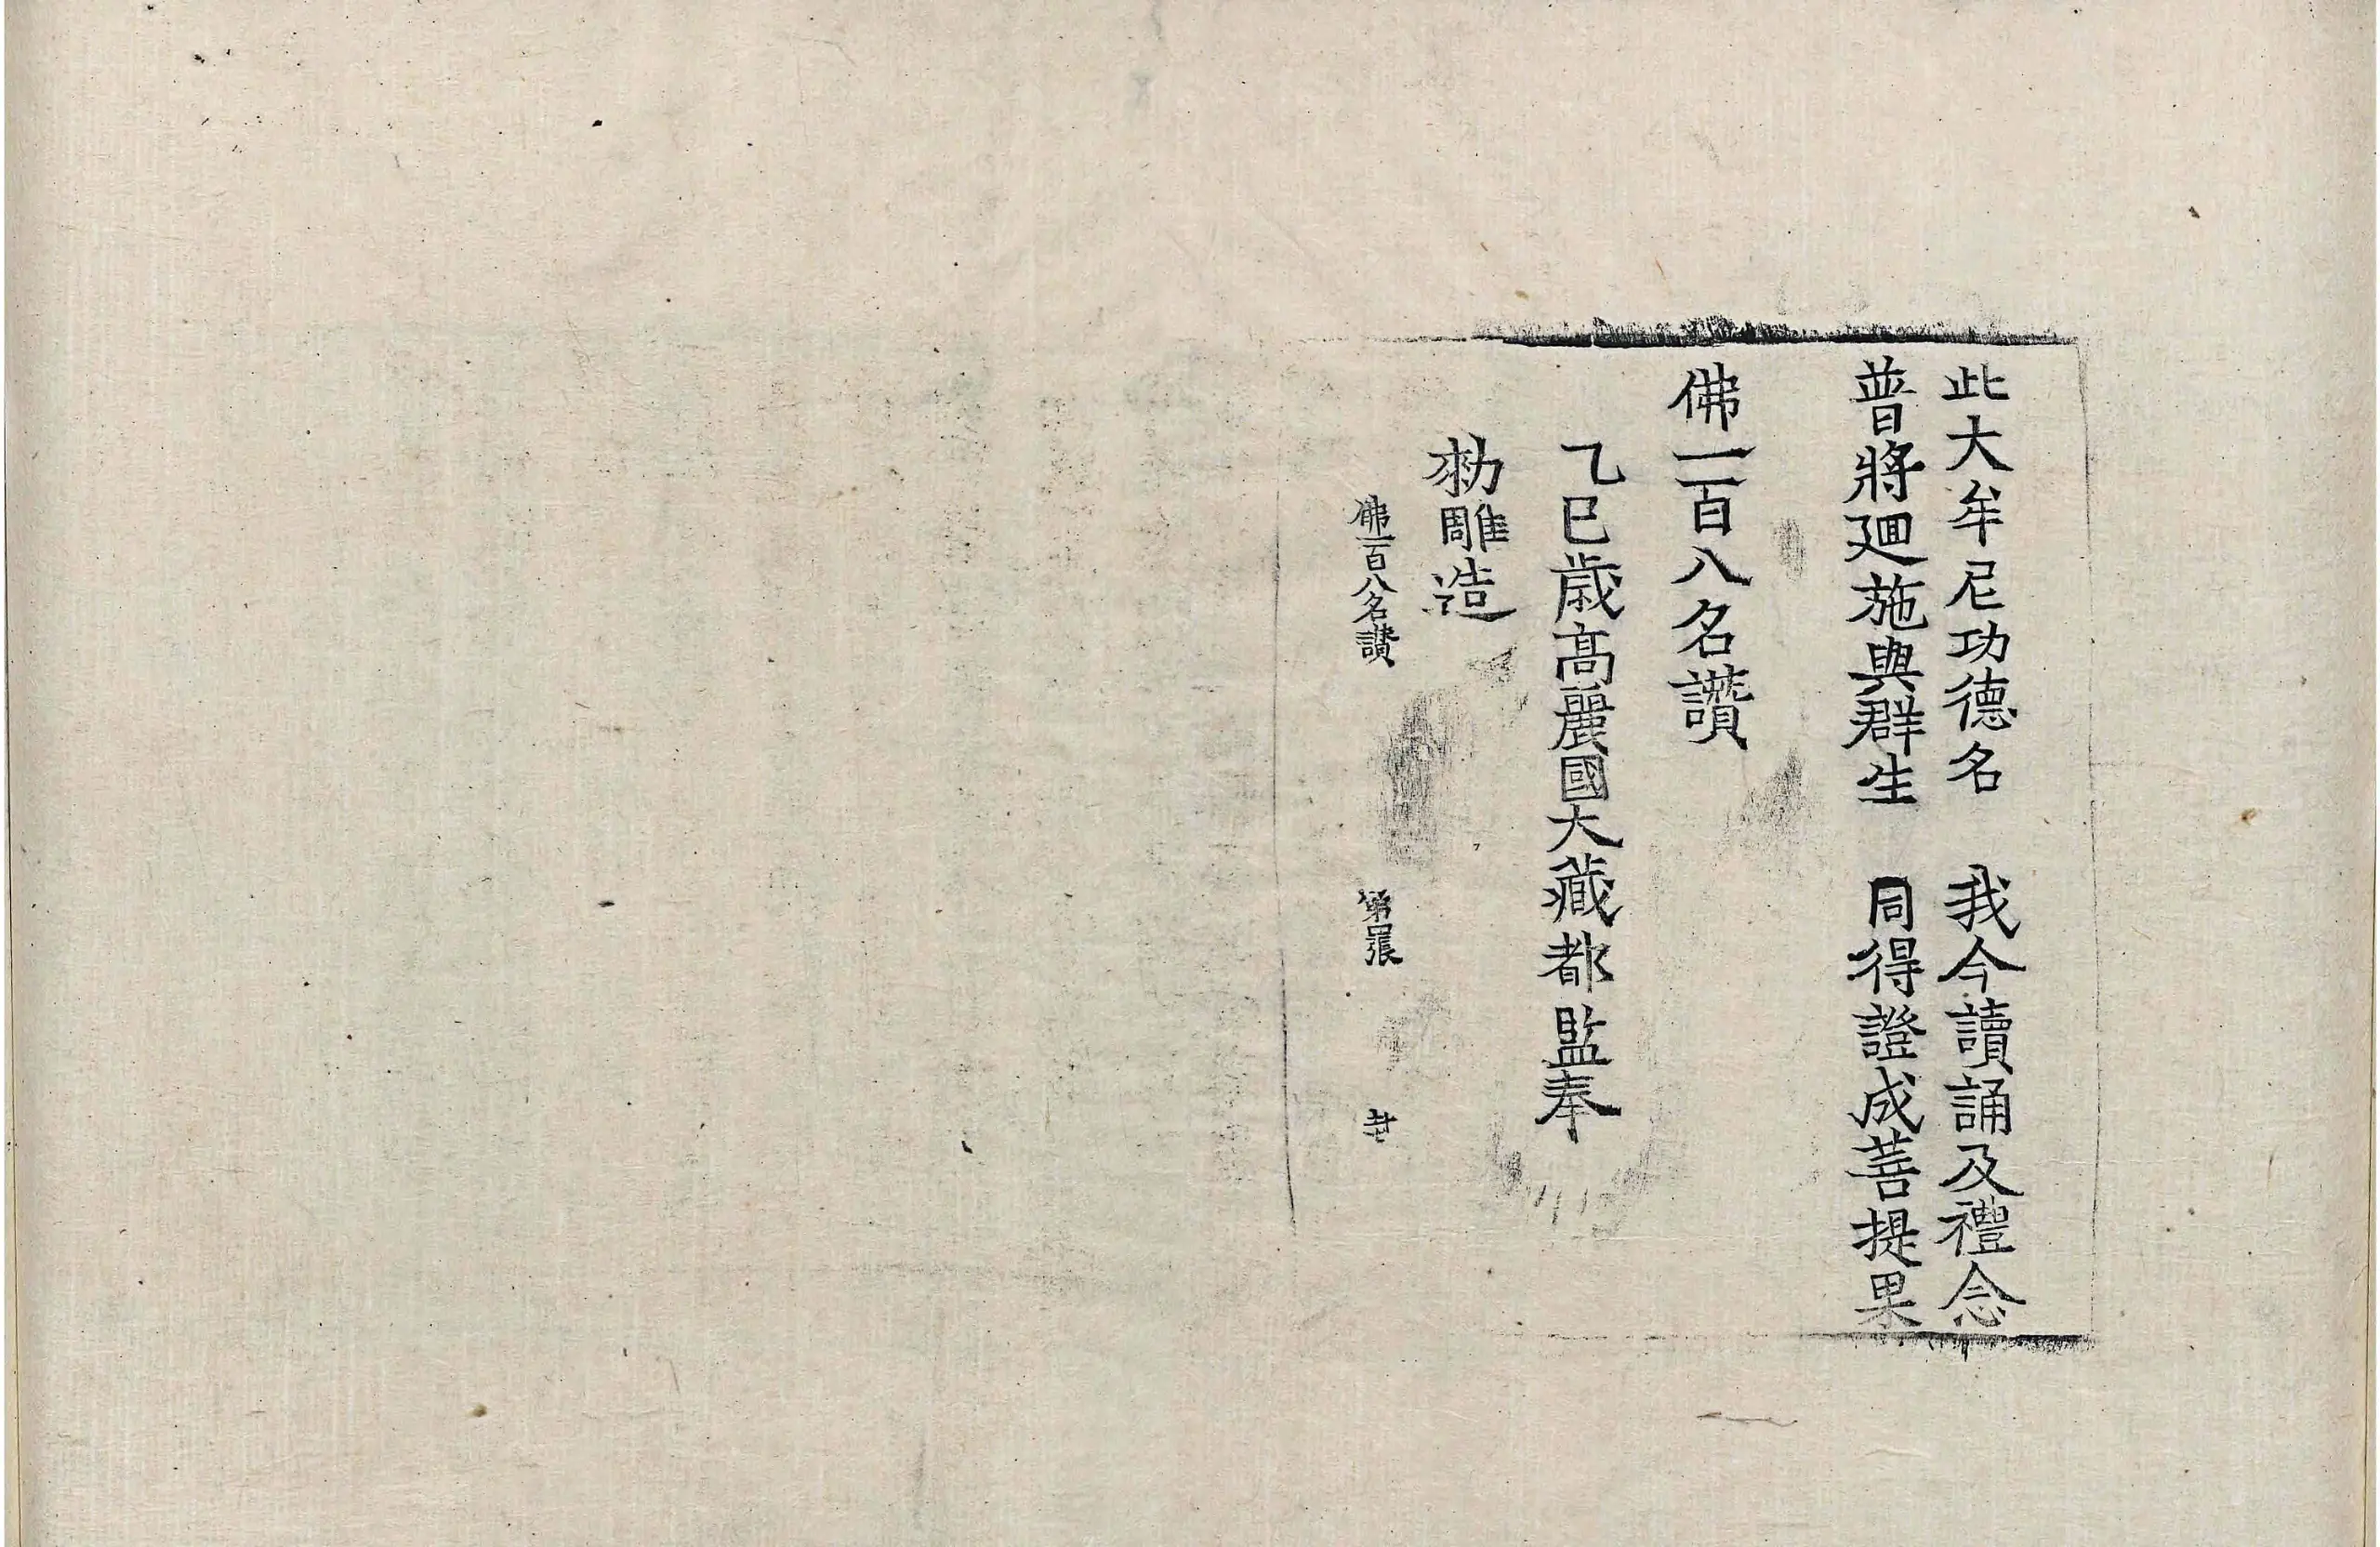 此大牟尼功德名　我今讀誦及禮念
普將廻施與群生　同得證成菩提果
佛一百八名讚
乙巳歲高麗國大藏都監奉
勑雕造
佛一百八名讃　第四張